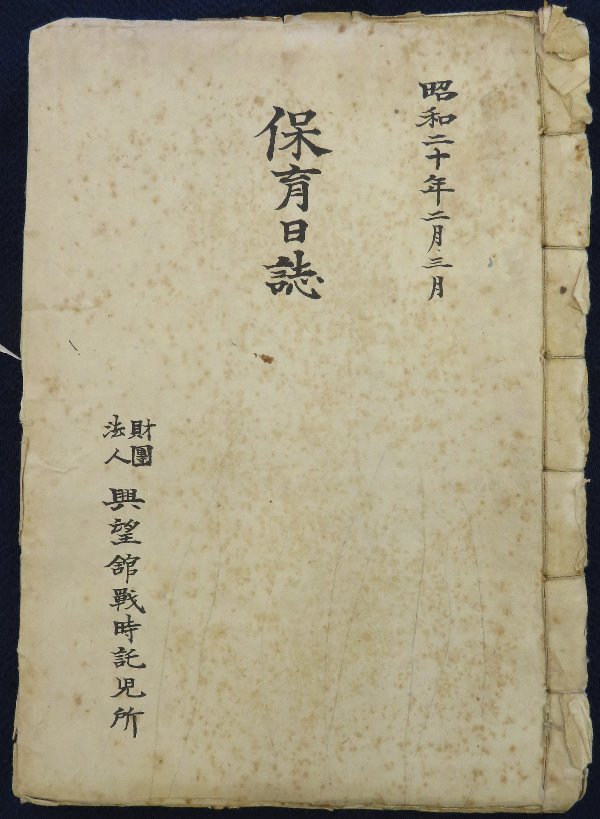 昭和二十年二月・三月
保育日誌
財團法人 興望舘戰時託児所